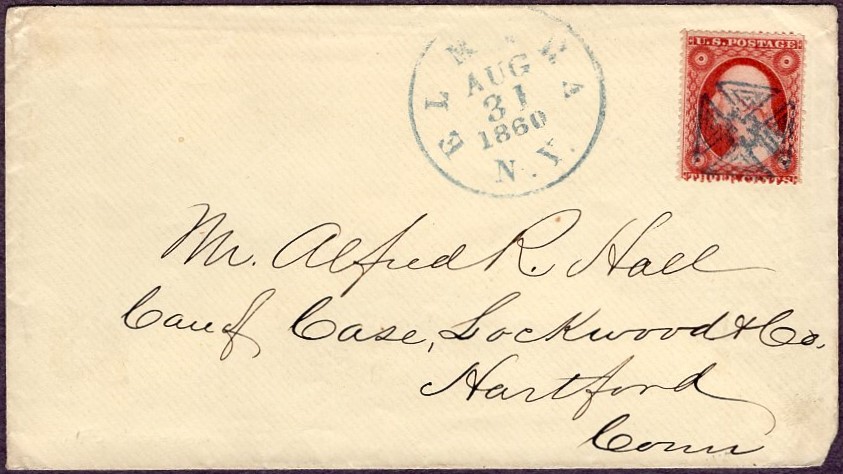 ELMIRA
AUG
31
1860
N.Y.
U.S. POSTAGE
THREE CENTS
Mr. Alfred R. Hall
Care of Case, Lockwood & Co.
Hartford
Conn